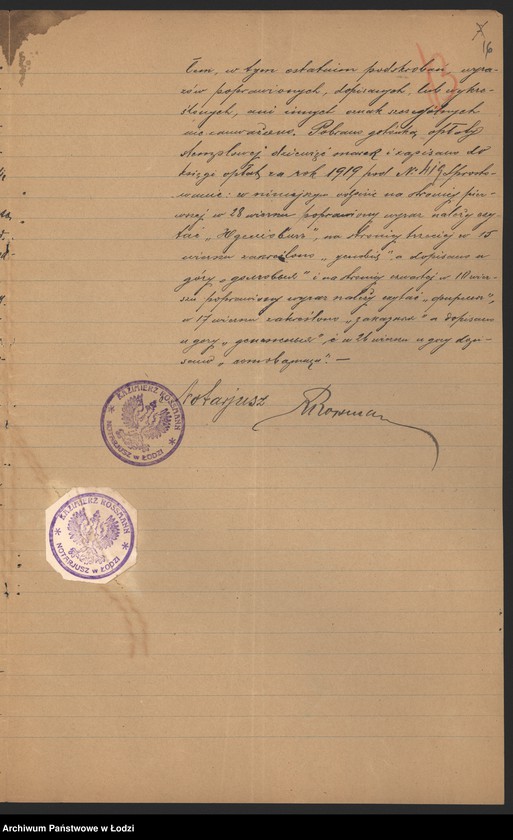 7
16
13
tem, w tym ostatnim podskrobań, wyra-
zów poprawionych, dopisanych, lub wykre-
ślonych, ani innych oznak szczególnych
nie zauważono. Pobrano gotówką opłaty
stemplowej dziewięć marek i zapisano do
księgi opłat za rok 1919 pod № Sprosto-
wanie: w niniejszym odpisie na stronicy pier-
wszej w 28 wierszu poprawiony wyraz należy czy-
tać na stronicy trzeciej w 15
wierszu zakreślono a dopisano u
góry i na stronicy czwartej w 10 wier-
szu poprawiony wyraz należy czytać
w 17 wierszu zakreślono a dopisano
u góry i w 26 wierszu u góry dopi-
sano
Notarjusz
KAZIMIERZ ROSSMANN
NOTARJUSZ w ŁODZI
KAZIMIERZ ROSSMANN
NOTARJUSZ w ŁODZI
Archiwum Państwowe w Łodzi